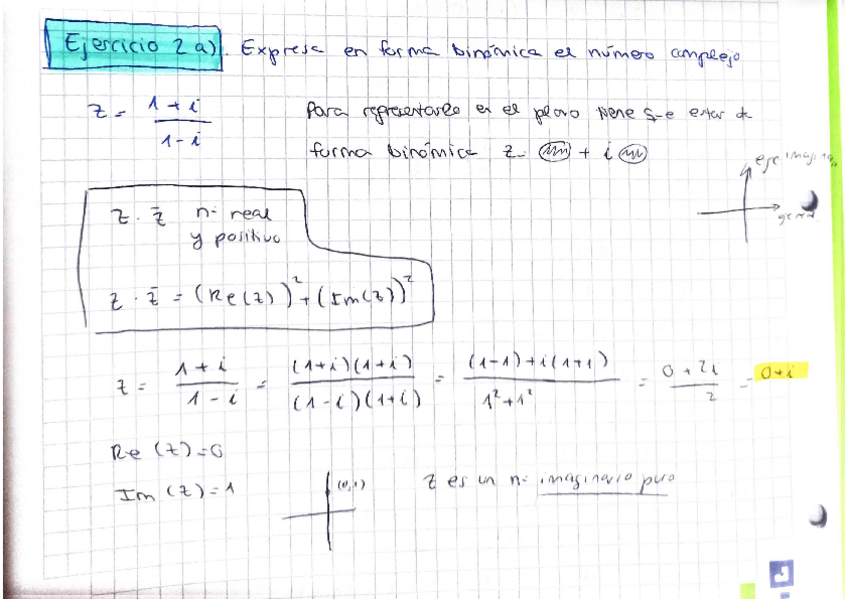 Ejercicio 2 a). Expresa en forma binómica el número complejo
z = 1 + i / 1 - i
Para representarlo en el plano tiene que estar de
forma binómica z = + i
eje imag
z · z̄ nº real
y positivo
z · z̄ = (Re(z))² + (Im(z))²
z = 1 + i / 1 - i = (1+i)(1+i) / (1-i)(1+i) = (1-1)+i(1+1) / 1²+1² = 0 + 2i / 2 = 0+i
Re (z) = 0
Im (z) = 1
(0,1)
z es un nº imaginario puro